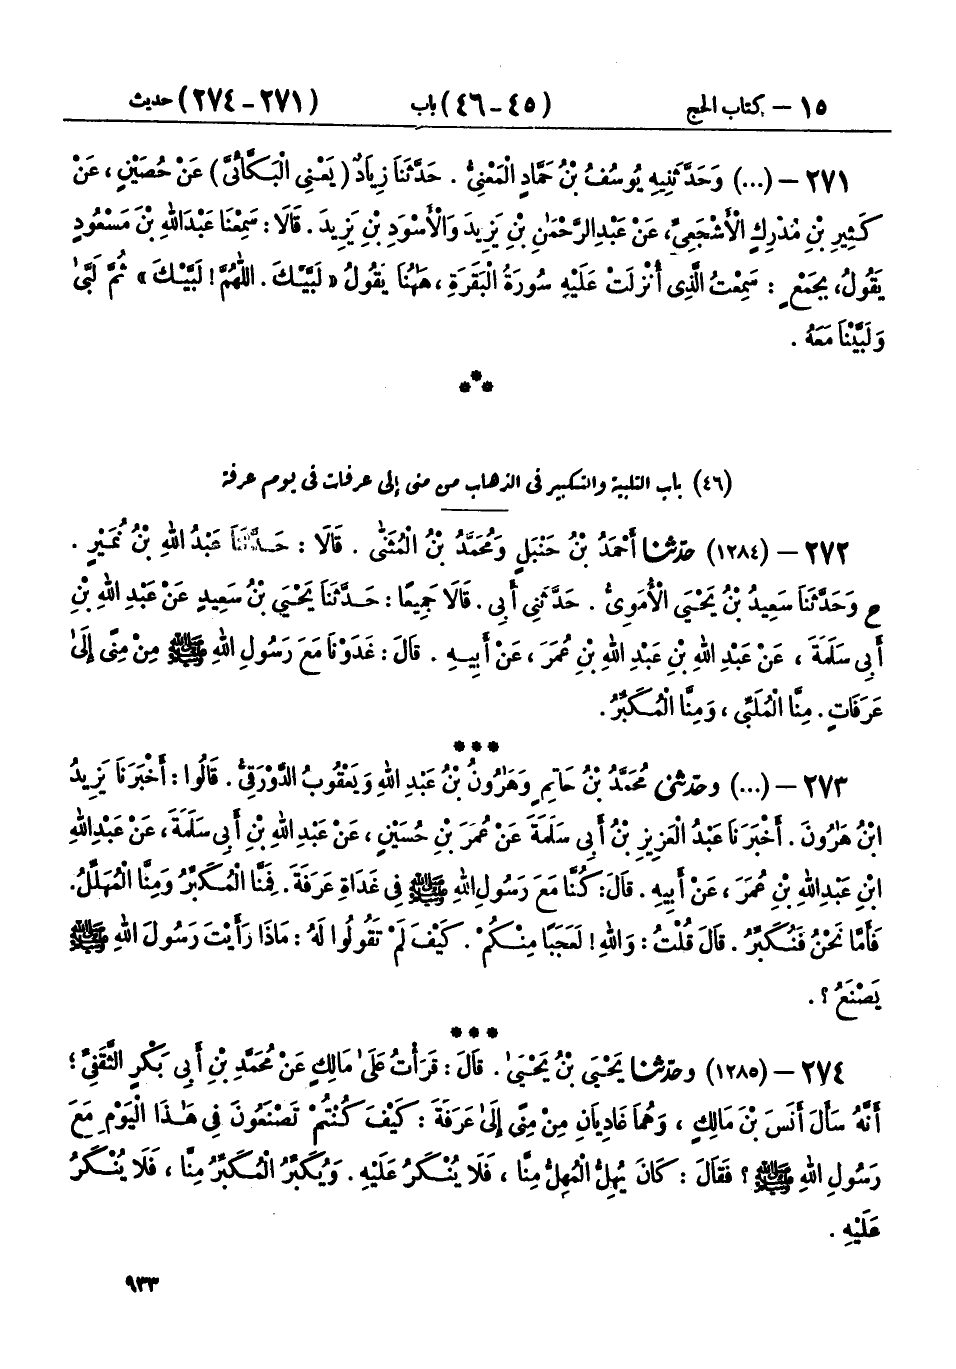 ١٥ – كتاب الحج (٤٥ – ٤٦) باب (٢٧١ – ٢٧٤) حديث
٢٧١ – (...) وَحَدَّثَنِيهِ يُوسُفُ بْنُ حَمَّادٍ الْمَعْنِيُّ . حَدَّثَنَا زِيَادٌ (يَعْنِي الْبَكَّائِيَّ) عَنْ حُصَيْنٍ ، عَنْ
كَثِيرِ بْنِ مُدْرِكٍ الْأَشْجَعِيِّ، عَنْ عَبْدِ الرَّحْمَٰنِ بْنِ يَزِيدَ وَالْأَسْوَدِ بْنِ يَزِيدَ . قَالَا : سَمِعْنَا عَبْدَ اللهِ بْنَ مَسْعُودٍ
يَقُولُ، بِجَمْعٍ : سَمِعْتُ الَّذِي أُنْزِلَتْ عَلَيْهِ سُورَةُ الْبَقَرَةِ ، هَٰهُنَا يَقُولُ « لَبَّيْكَ . اللَّهُمَّ ! لَبَّيْكَ » ثُمَّ لَبَّىٰ
وَلَبَّيْنَا مَعَهُ .
***
(٤٦) باب التلبية والتكبير في الذهاب من منى إلى عرفات في يوم عرفة
٢٧٢ – (١٢٨٤) حدّثنا أَحْمَدُ بْنُ حَنْبَلٍ وَمُحَمَّدُ بْنُ الْمُثَنَّىٰ . قَالَا : حَدَّثَنَا عَبْدُ اللهِ بْنُ نُمَيْرٍ .
ح وَحَدَّثَنَا سَعِيدُ بْنُ يَحْيَى الْأُمَوِيُّ . حَدَّثَنِي أَبِي . قَالَا جَمِيعًا : حَدَّثَنَا يَحْيَى بْنُ سَعِيدٍ عَنْ عَبْدِ اللهِ بْنِ
أَبِي سَلَمَةَ ، عَنْ عَبْدِ اللهِ بْنِ عَبْدِ اللهِ بْنِ عُمَرَ ، عَنْ أَبِيهِ . قَالَ : غَدَوْنَا مَعَ رَسُولِ اللهِ ﷺ مِنْ مِنًى إِلَىٰ
عَرَفَاتٍ . مِنَّا الْمُلَبِّي ، وَمِنَّا الْمُكَبِّرُ .
***
٢٧٣ – (...) وحدّثني مُحَمَّدُ بْنُ حَاتِمٍ وَهَٰرُونُ بْنُ عَبْدِ اللهِ وَيَعْقُوبُ الدَّوْرَقِيُّ . قَالُوا : أَخْبَرَنَا يَزِيدُ
ابْنُ هَٰرُونَ . أَخْبَرَنَا عَبْدُ الْعَزِيزِ بْنُ أَبِي سَلَمَةَ عَنْ عُمَرَ بْنِ حُسَيْنٍ ، عَنْ عَبْدِ اللهِ بْنِ أَبِي سَلَمَةَ ، عَنْ عَبْدِ اللهِ
ابْنِ عَبْدِ اللهِ بْنِ عُمَرَ ، عَنْ أَبِيهِ . قَالَ: كُنَّا مَعَ رَسُولِ اللهِ ﷺ فِي غَدَاةِ عَرَفَةَ . فَمِنَّا الْمُكَبِّرُ وَمِنَّا الْمُهَلِّلُ.
فَأَمَّا نَحْنُ فَنُكَبِّرُ . قَالَ قُلْتُ : وَاللهِ ! لَعَجَبًا مِنْكُمْ . كَيْفَ لَمْ تَقُولُوا لَهُ : مَاذَا رَأَيْتَ رَسُولَ اللهِ ﷺ
يَصْنَعُ ؟ .
***
٢٧٤ – (١٢٨٥) وحدّثنا يَحْيَى بْنُ يَحْيَىٰ . قَالَ : قَرَأْتُ عَلَىٰ مَالِكٍ عَنْ مُحَمَّدِ بْنِ أَبِي بَكْرٍ الثَّقَفِيِّ ؛
أَنَّهُ سَأَلَ أَنَسَ بْنَ مَالِكٍ ، وَهُمَا غَادِيَانِ مِنْ مِنًى إِلَىٰ عَرَفَةَ : كَيْفَ كُنْتُمْ تَصْنَعُونَ فِي هَٰذَا الْيَوْمِ مَعَ
رَسُولِ اللهِ ﷺ ؟ فَقَالَ : كَانَ يُهِلُّ الْمُهِلُّ مِنَّا ، فَلَا يُنْكَرُ عَلَيْهِ . وَيُكَبِّرُ الْمُكَبِّرُ مِنَّا ، فَلَا يُنْكَرُ
عَلَيْهِ .
٩٣٣